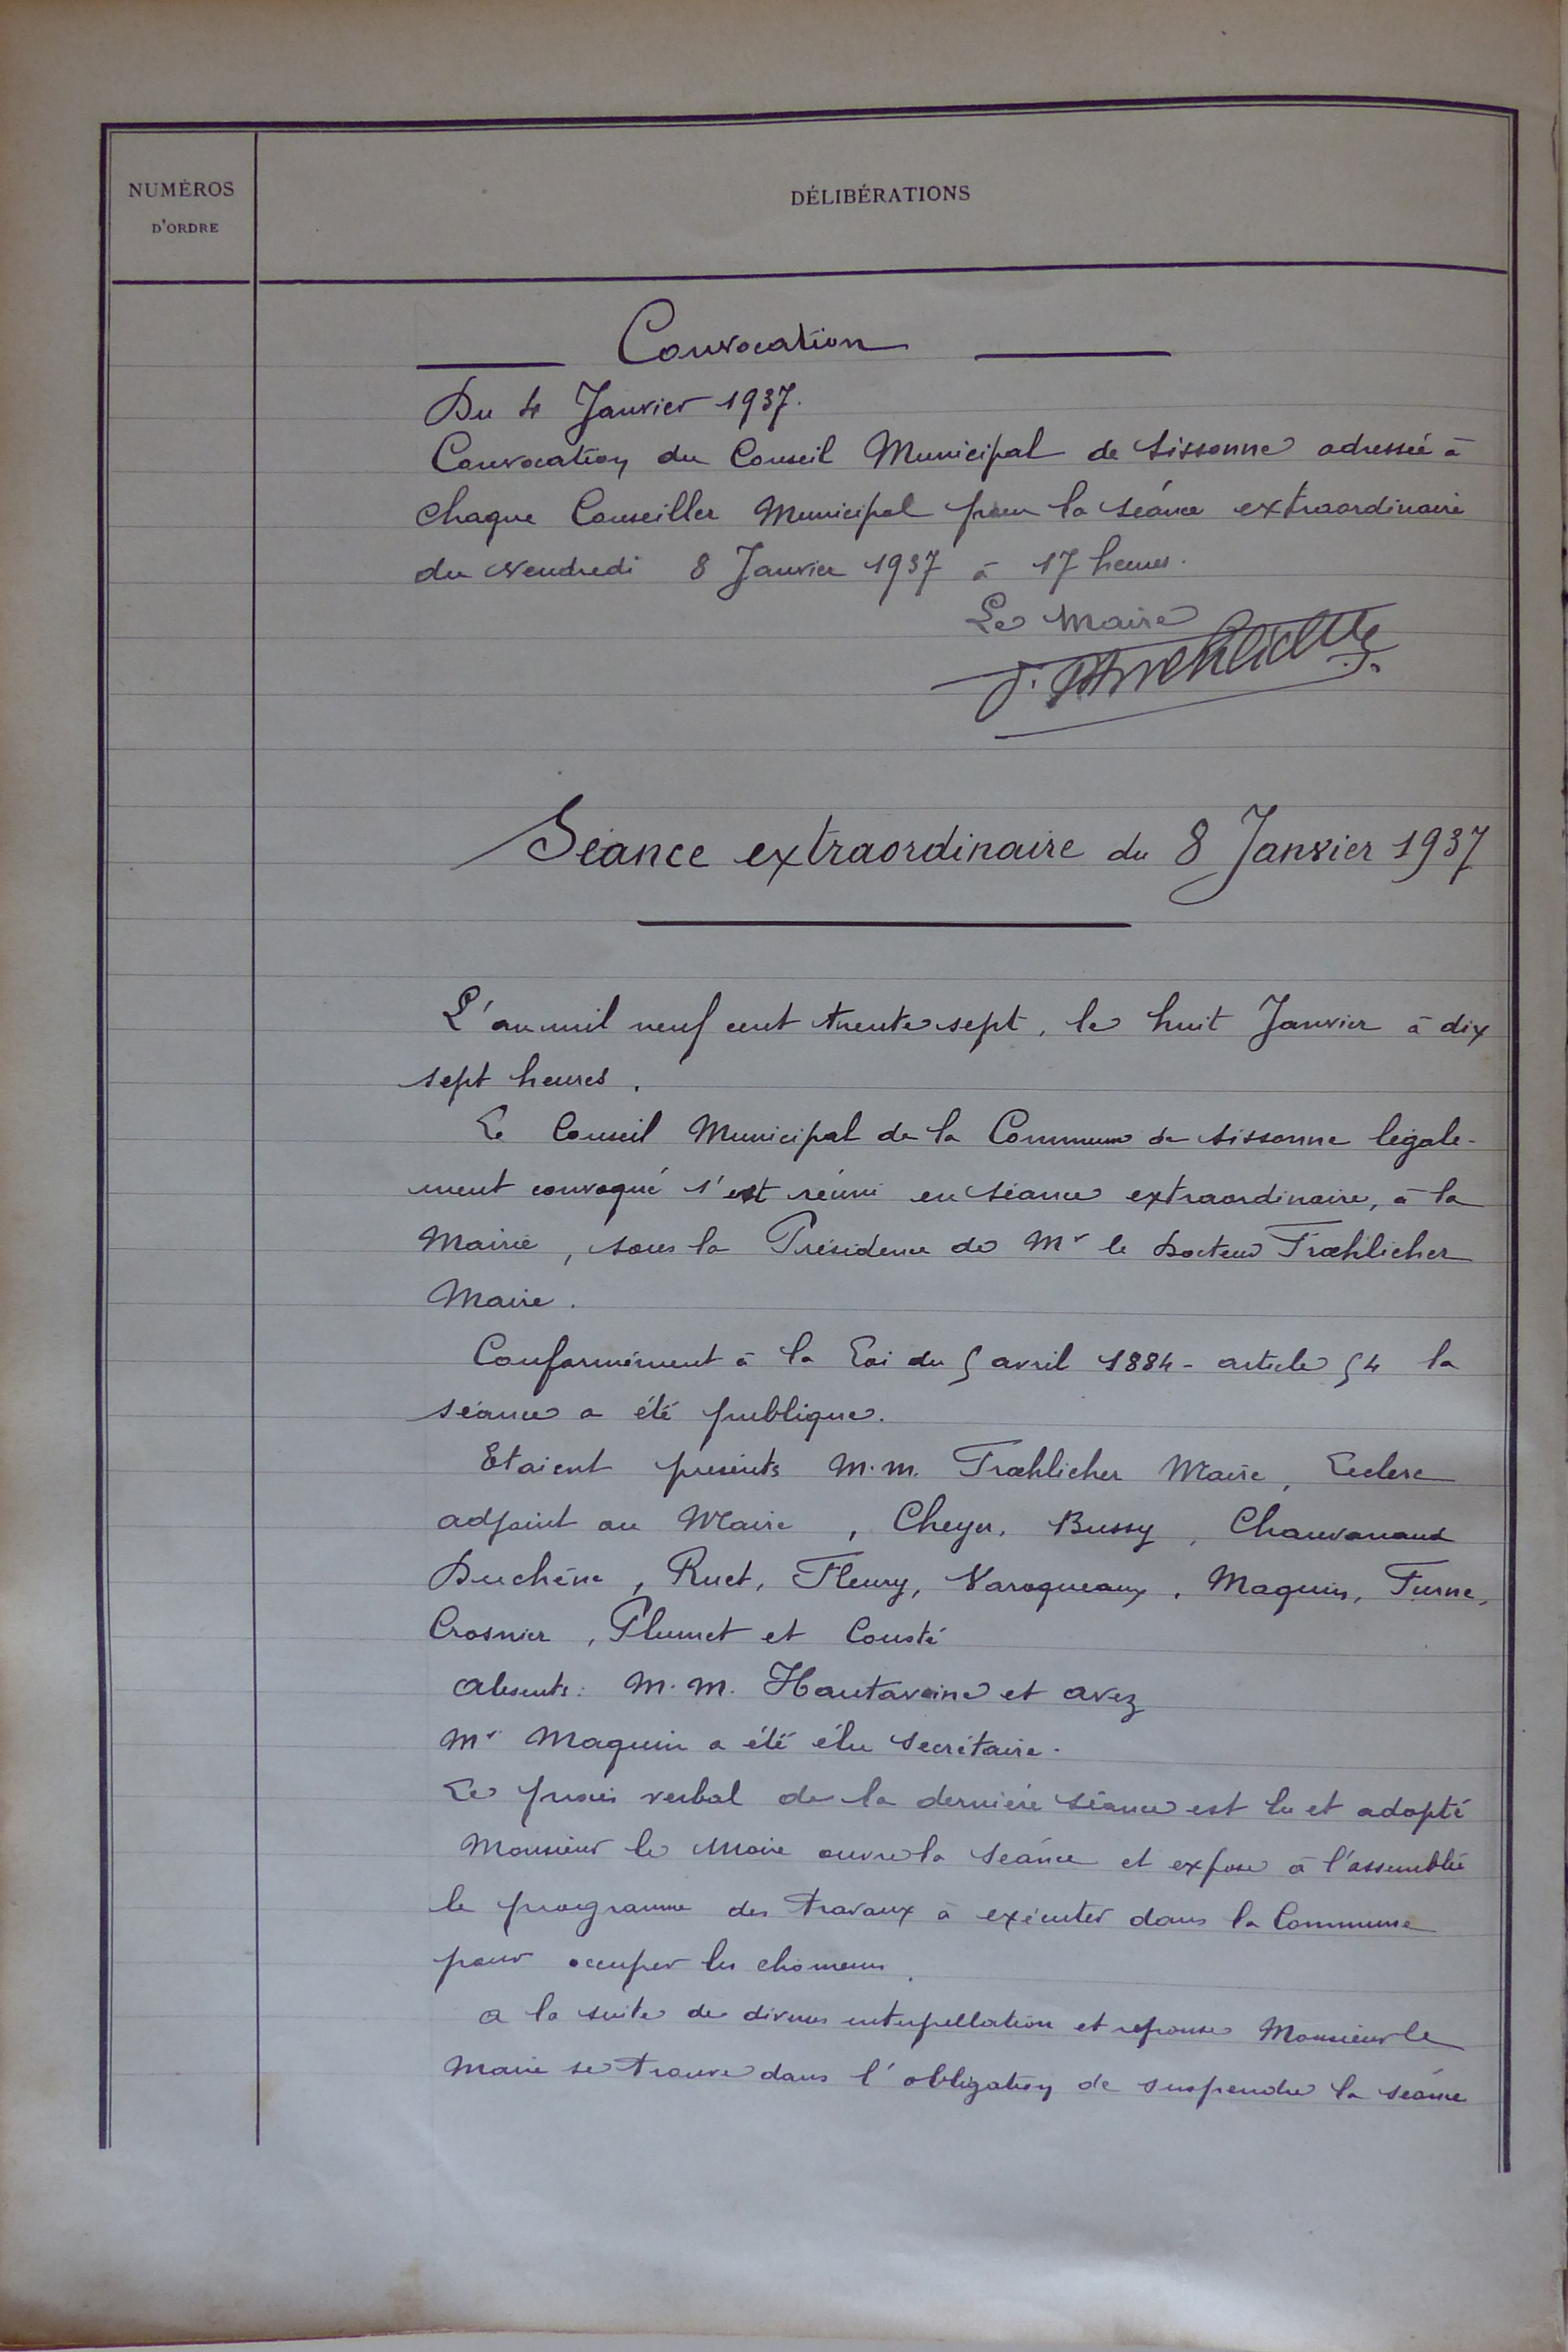 NUMÉROS
D'ORDRE
DÉLIBÉRATIONS
Convocation
Du 4 Janvier 1937.
Convocation du Conseil Municipal de Sissonne adressée à
chaque Conseiller Municipal pour la séance extraordinaire
du Vendredi 8 Janvier 1937 à 17 heures.
Le Maire
Séance extraordinaire du 8 Janvier 1937
L'an mil neuf cent trente sept, le huit Janvier à dix
sept heures.
Le Conseil Municipal de la Commune de Sissonne légale-
ment convoqué s'est réuni en séance extraordinaire, à la
Mairie, sous la Présidence de Mr le Docteur Frœhlicher
Maire.
Conformément à la Loi du 5 avril 1884 - article 54 la
séance a été publique.
Etaient présents M.M. Frœhlicher Maire, Leclere
adjoint au Maire, Cheyer, Bussy, Chauvanaud
Duchêne, Ruet, Fleury, Varoqueaux, Maquin, Furne,
Crosnier, Plumet et Cousté
Absents: M.M. Hautavoine et Avez
Mr Maquin a été élu Secrétaire.
Le procès verbal de la dernière séance est lu et adopté
Monsieur le Maire ouvre la séance et expose à l'assemblée
le programme des travaux à exécuter dans la Commune
pour occuper les chômeurs.
A la suite de diverses interpellation et reponses Monsieur le
Maire se trouve dans l'obligation de suspendre la séance